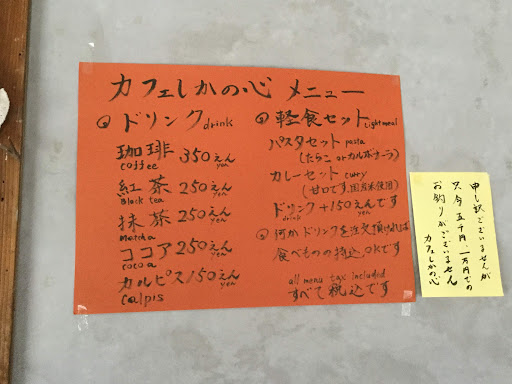 カフェしかの心 メニュー
ドリンク drink
珈琲 350えん
coffee yen
紅茶 250えん
Black tea yen
抹茶 250えん
Matcha yen
ココア 250えん
cocoa yen
カルピス 150えん
calpis yen
軽食セット Light meal
パスタセット pasta
(たらこ orカルボナーラ)
カレーセット curry
(甘口です、国産米使用)
ドリンク +150えんです
drink yen
何かドリンクを注文頂ければ
食べもの持込、OKです
all menu tax included
すべて税込です
申し訳ございませんが
只今五千円、一万円での
お釣りがございません
カフェしかの心